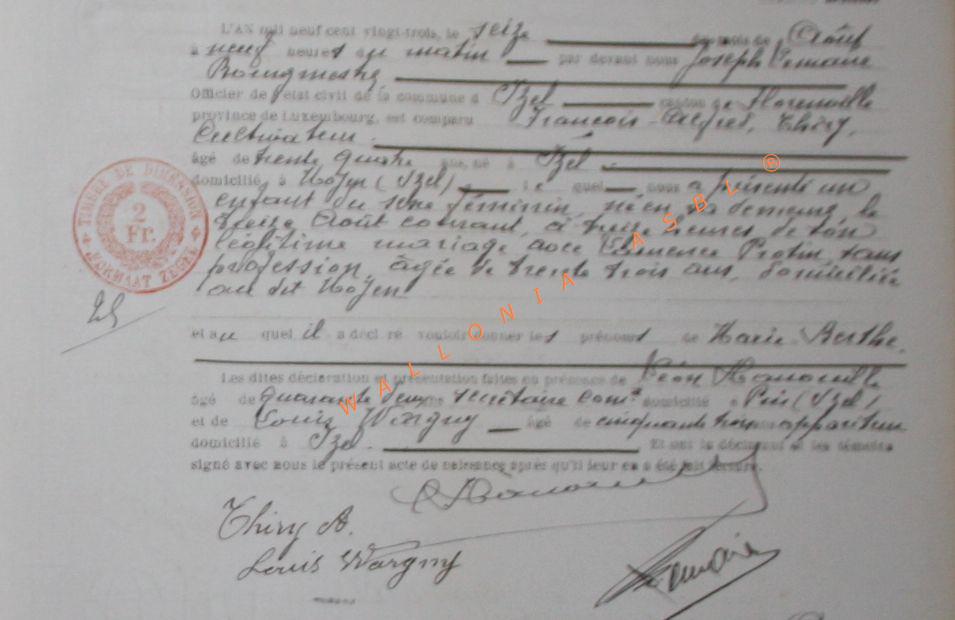 L'AN mil neuf cent vingt-trois, le seize du mois de Août
à neuf heures du matin par devant nous Joseph Lemaire
Bourgmestre
Officier de l'état civil de la commune d Izel canton de Florenville
province de Luxembourg, est comparu François-Alfred, Thiry,
Cultivateur
âgé de trente quatre ans, né à Izel
domicilié à Moyen (Izel) lequel nous a présenté un
enfant du sexe féminin, né en sa demeure, le
treize Août courant, à heures de son
légitime mariage avec Clémence Protin, sans
profession, âgée de trente trois ans, domiciliée
au dit Moyen
et auquel il a déclaré vouloir donner les prénoms de Marie-Berthe.
Les dites déclaration et présentation faites en présence de Léon
âgé de quarante deux ans secrétaire comal domicilié à Pin (Izel)
et de Louis Wargny âgé de cinquante trois ans appariteur
domicilié à Izel. Et ont le déclarant et les témoins
signé avec nous le présent acte de naissance après qu'il leur en a été fait lecture.
TIMBRE DE DIMENSION
2
Fr.
FORMAAT ZEGEL
Thiry A.
Louis Wargny
Lemaire
WALLONIA ASBL ®